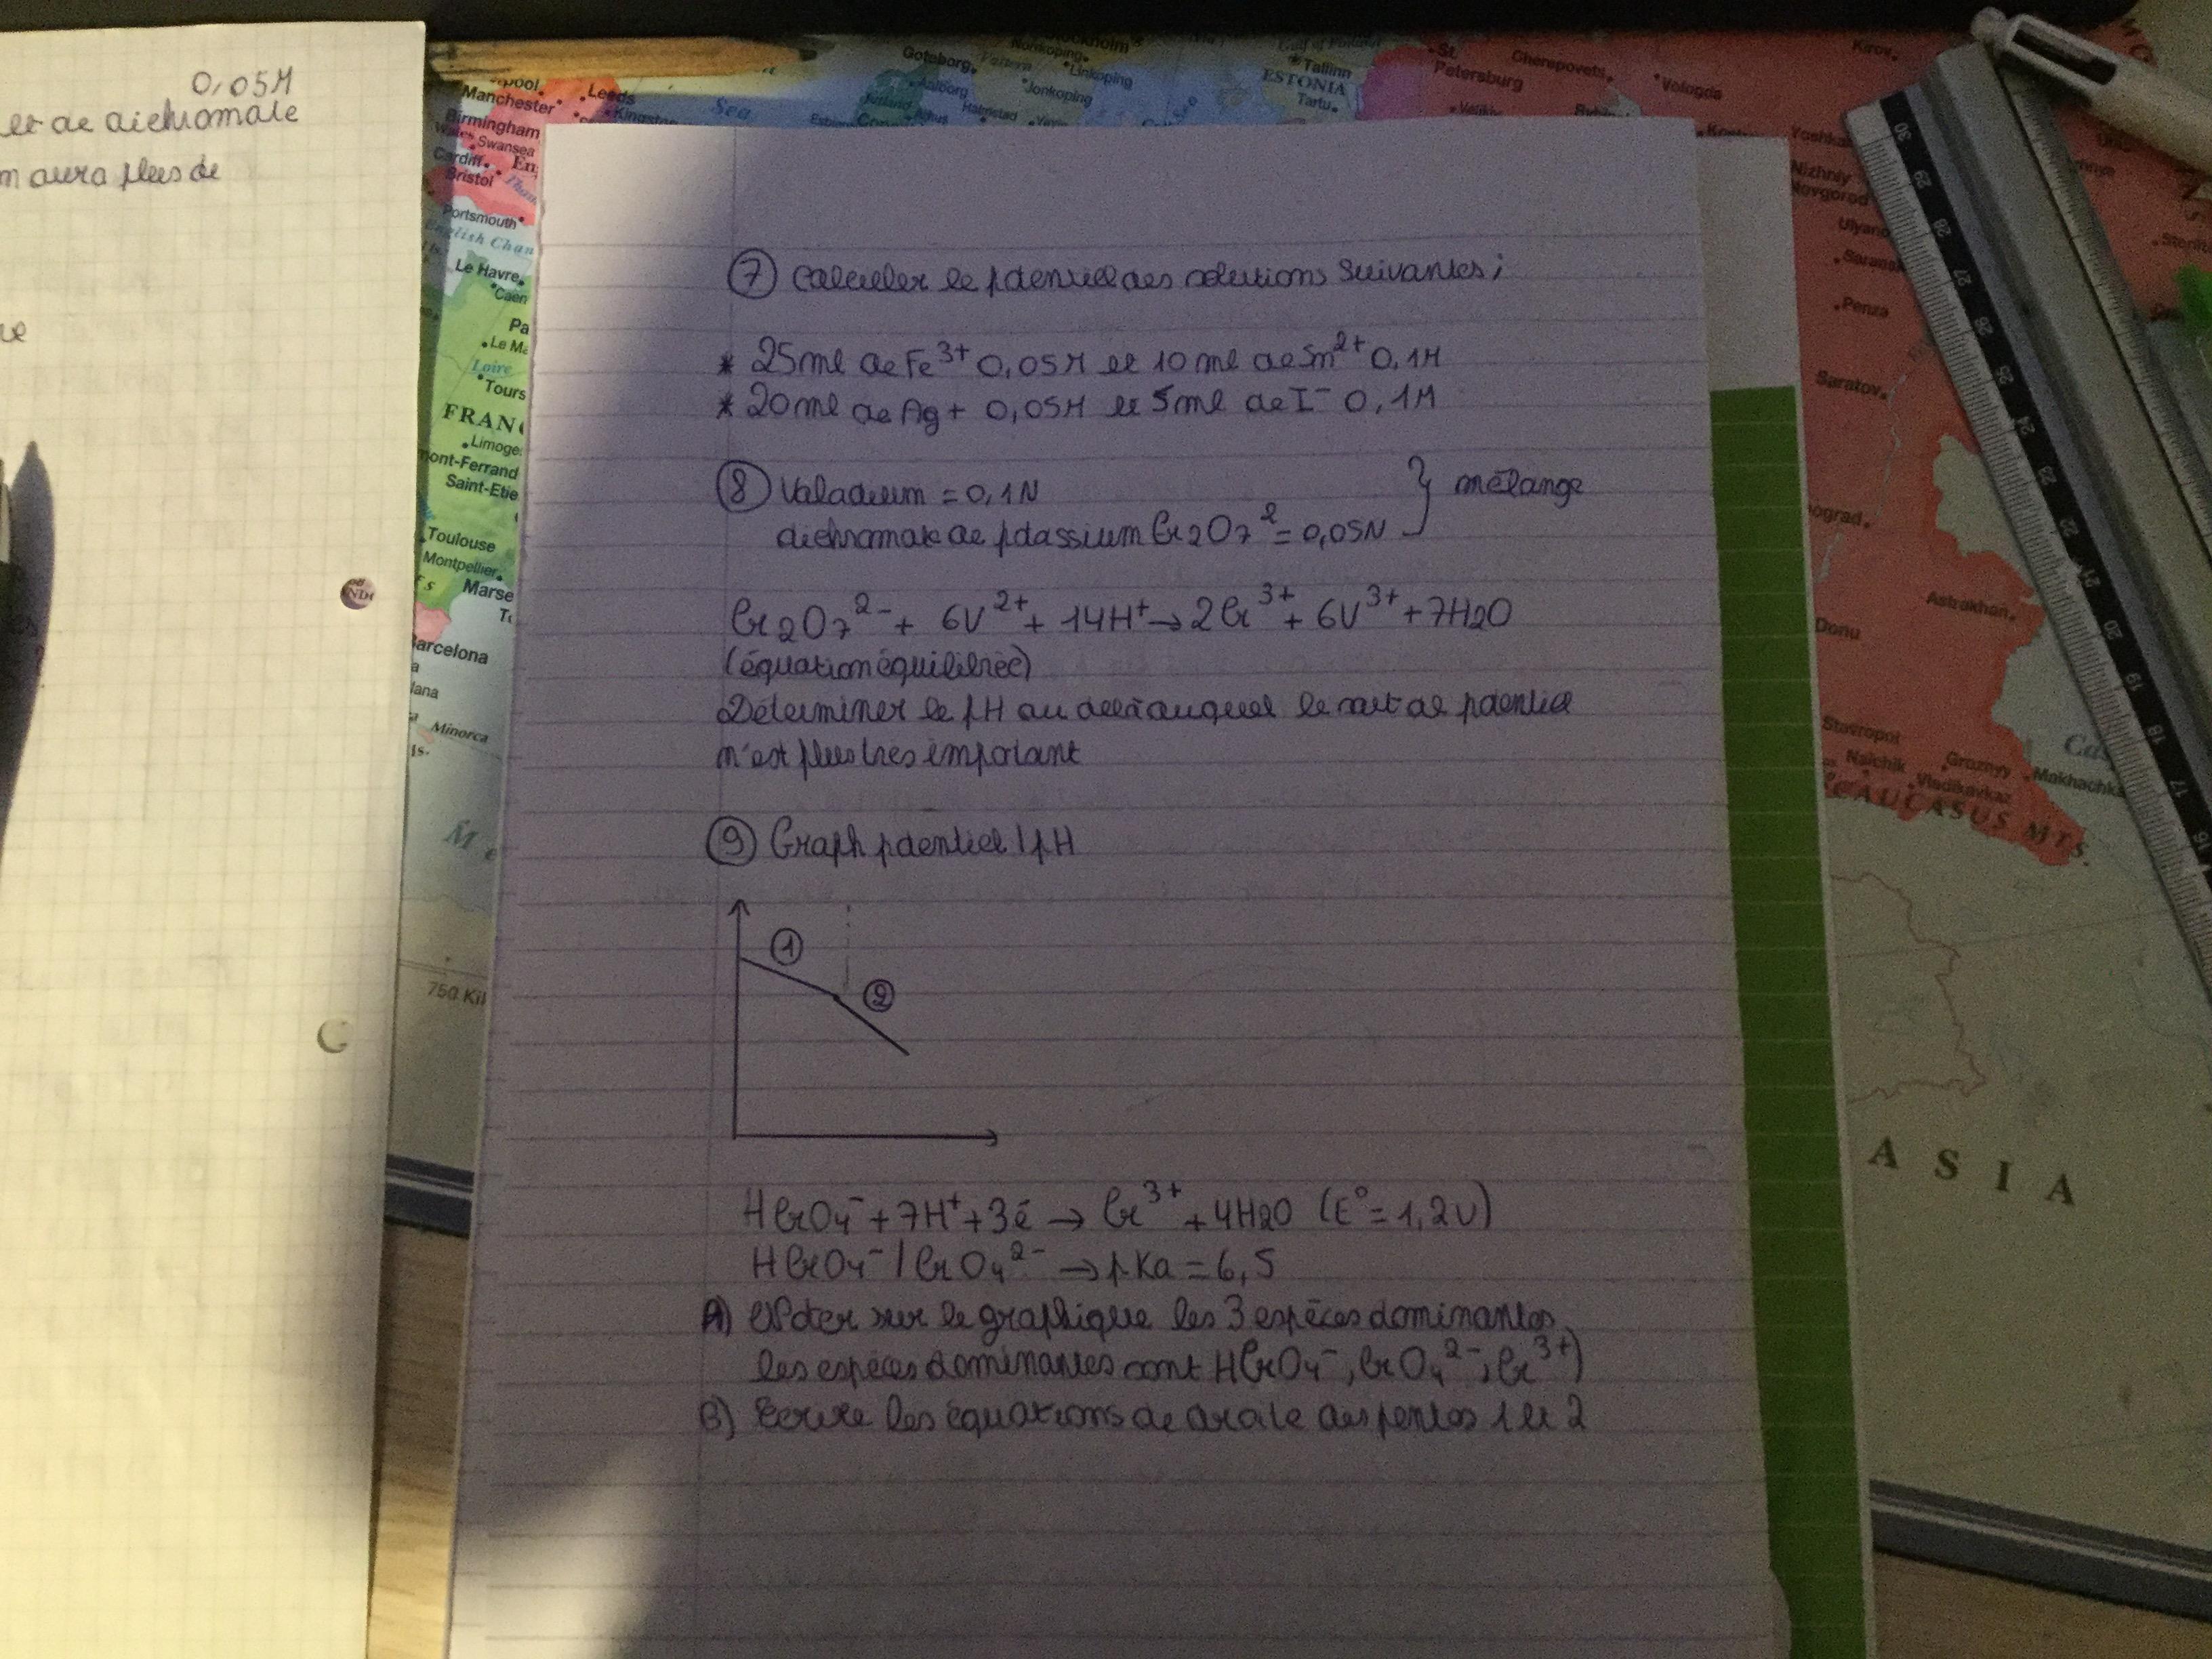 0,05M
et de dichromate
n aura plus de
⑦ Calculer le potentiel des solutions suivantes;
* 25ml de Fe³⁺ 0,05M et 10 ml de Sn²⁺ 0,1M
* 20ml de Ag+ 0,05M et 5ml de I⁻ 0,1M
⑧ Valadium = 0,1N
dichromate de potassium Cr2O7² = 0,05N } mélange
Cr2O7²⁻ + 6V²⁺ + 14H⁺ → 2Cr³⁺ + 6V³⁺ + 7H2O
(équation équilibrée)
Déterminer le pH au delà auquel le saut de potentiel
n'est plus très important
⑨ Graph potentiel / pH
①
②
HCrO4⁻ + 7H⁺ + 3é → Cr³⁺ + 4H2O (E° = 1,2V)
HCrO4⁻ / CrO4²⁻ → pKa = 6,5
A) Noter sur le graphique les 3 espèces dominantes
les espèces dominantes sont HCrO4⁻, CrO4²⁻, Cr³⁺)
B) Ecrire les équations de droite des pentes 1 et 2
Manchester
Leeds
Kingston
Birmingham
Wales
Swansea
Cardiff
Bristol
Portsmouth
English Chan
Le Havre
Caen
Pa
Le Ma
Loire
Tours
FRAN
Limoge
mont-Ferrand
Saint-Etie
Toulouse
Montpellier
Marse
Barcelona
Minorca
750 Kil
Sea
Goteborg
Aalborg
Norrkoping
Linkoping
Jonkoping
Halmstad
Gulf of Finland
Tallinn
ESTONIA
Tartu
St.
Petersburg
Cherepovets
Vologda
Kirov
Nizhniy
Novgorod
Saransk
Penza
Saratov
Astrakhan
Stavropol
Nalchik
Groznyy
Vladikavkaz
Makhachk
CAUCASUS MTS.
ASIA
30
29
28
27
26
25
24
23
22
21
20
19
18
17
16